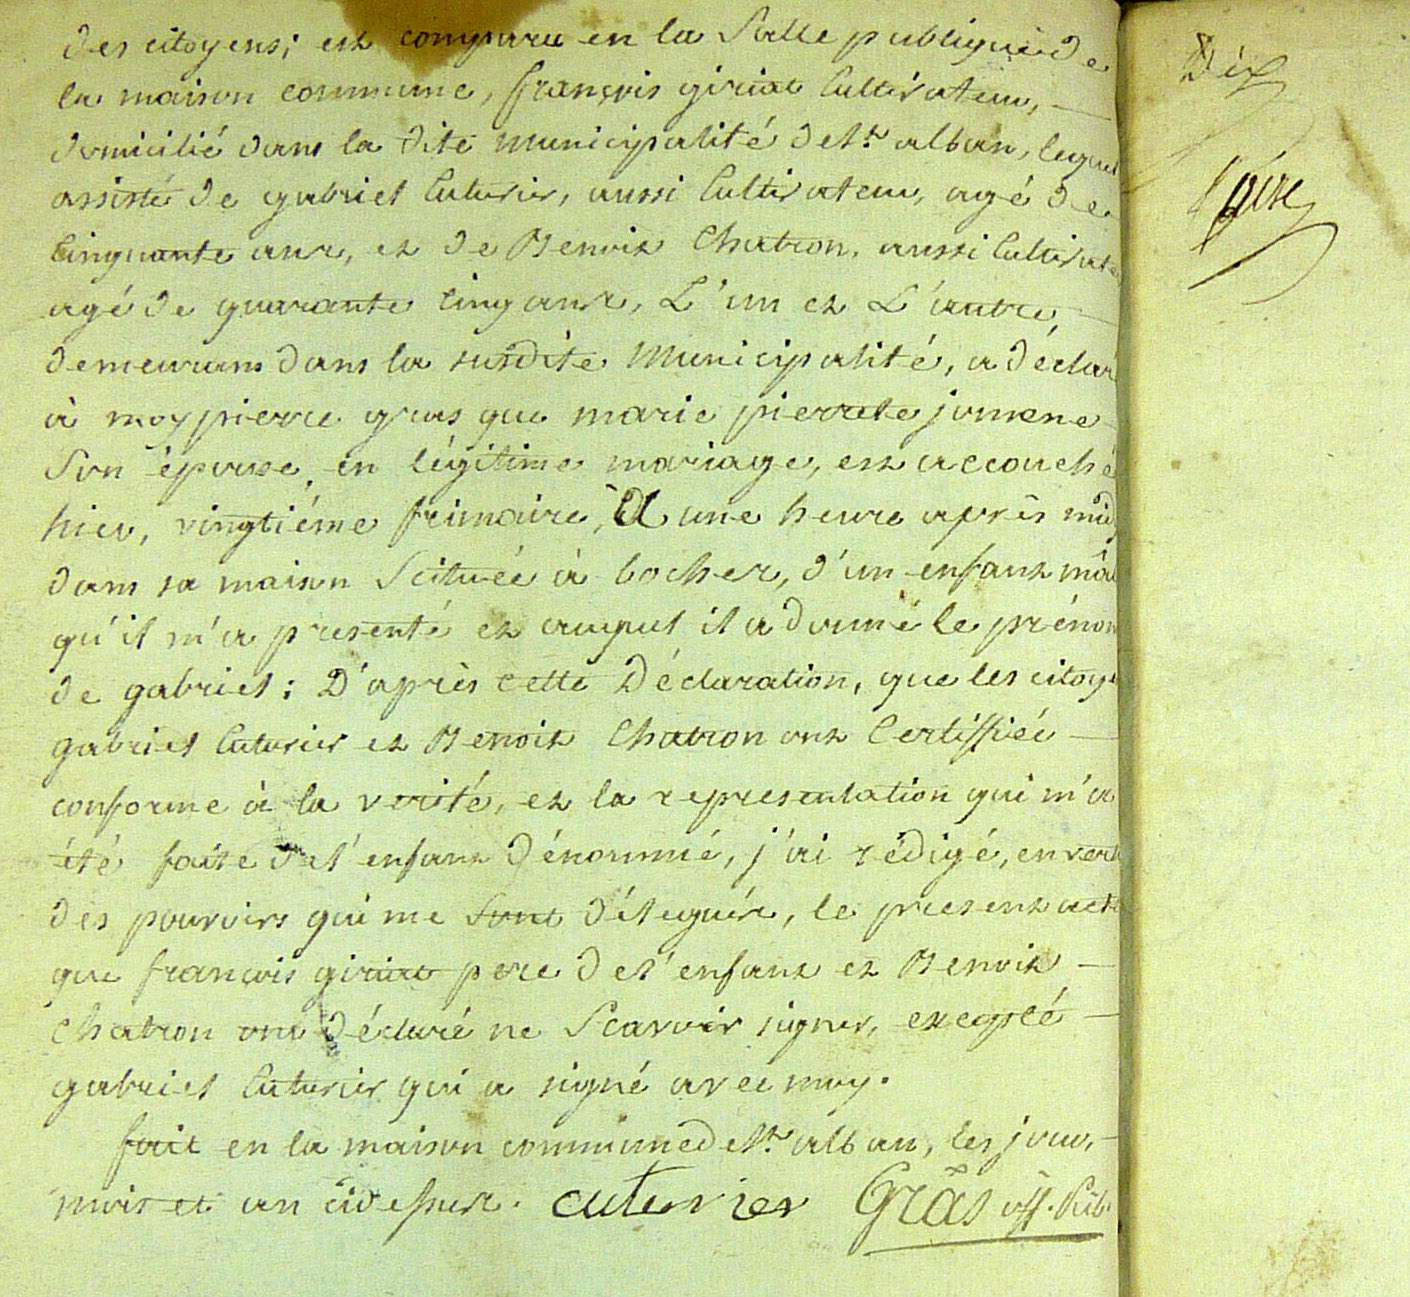 des citoyens; est comparu en la Salle publique de
la maison commune, françois giriat Cultivateur,
domicilié dans la dite municipalité de St. alban, lequel
assisté de gabriel Cuterier, aussi Cultivateur, agé de
Cinquante ans, et de Benoit Chatron, aussi Cultivate
agé de quarante Cinq ans, L'un et L'autre,
demeurans dans la susdite Municipalité, a déclaré
à moy pierre gras que marie pierrete
Son épouse en légitime mariage, est accouché
hier, vingtiéme frimaire, A une heure après midy
dans sa maison Scituée à bocher, d'un enfant mâl
qu'il m'a presenté et auquel il a donné le prénom
de gabriel; D'après cette Déclaration, que les citoye
gabriel Cuterier et Benoit Chatron ont Certiffiée
conforme à la verité, et la representation qui m'a
été faite de l'enfant dénommé, j'ai rédigé, en vertu
des pouvoirs qui me sont délégués, le present acte
que françois giriat pere de l'enfant et Benoit
Chatron ont déclaré ne Scavoir signer, excepté
gabriel Cuterier qui a signé avec moy.
fait en la maison commune de St. alban, les jour,
mois et an cidessus. cuterier Gras off. Pub.
Dix